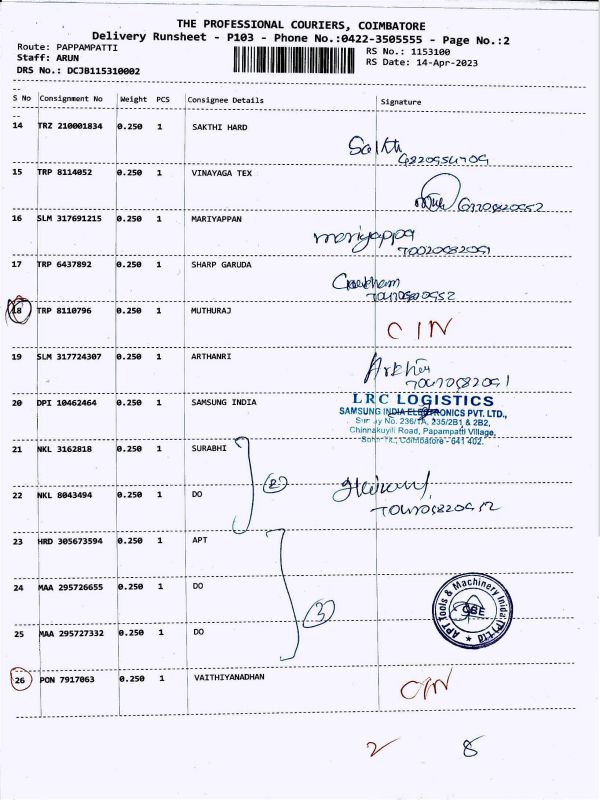 THE PROFESSIONAL COURIERS, COIMBATORE
Delivery Runsheet - P103 - Phone No.:0422-3505555 - Page No.:2
Route: PAPPAMPATTI RS No.: 1153100
Staff: ARUN RS Date: 14-Apr-2023
DRS No.: DCJB115310002
S No Consignment No Weight PCS Consignee Details Signature
14 TRZ 210001834 0.250 1 SAKTHI HARD
15 TRP 8114052 0.250 1 VINAYAGA TEX
16 SLM 317691215 0.250 1 MARIYAPPAN
mariyappa
17 TRP 6437892 0.250 1 SHARP GARUDA
18 TRP 8110796 0.250 1 MUTHURAJ CIN
19 SLM 317724307 0.250 1 ARTHANRI
20 DPI 10462464 0.250 1 SAMSUNG INDIA
LRC LOGISTICS
SAMSUNG INDIA ELECTRONICS PVT. LTD.,
No. 236/1A, 235/2B1 & 2B2,
Chinnakuyili Road, Papampatti Village,
Coimbatore - 641 402.
21 NKL 3162818 0.250 1 SURABHI
2
22 NKL 8043494 0.250 1 DO
23 HRD 305673594 0.250 1 APT
24 MAA 295726655 0.250 1 DO
3
APT Tools & Machinery Inida (P) Ltd
25 MAA 295727332 0.250 1 DO
26 PON 7917063 0.250 1 VAITHIYANADHAN CIN
2 8